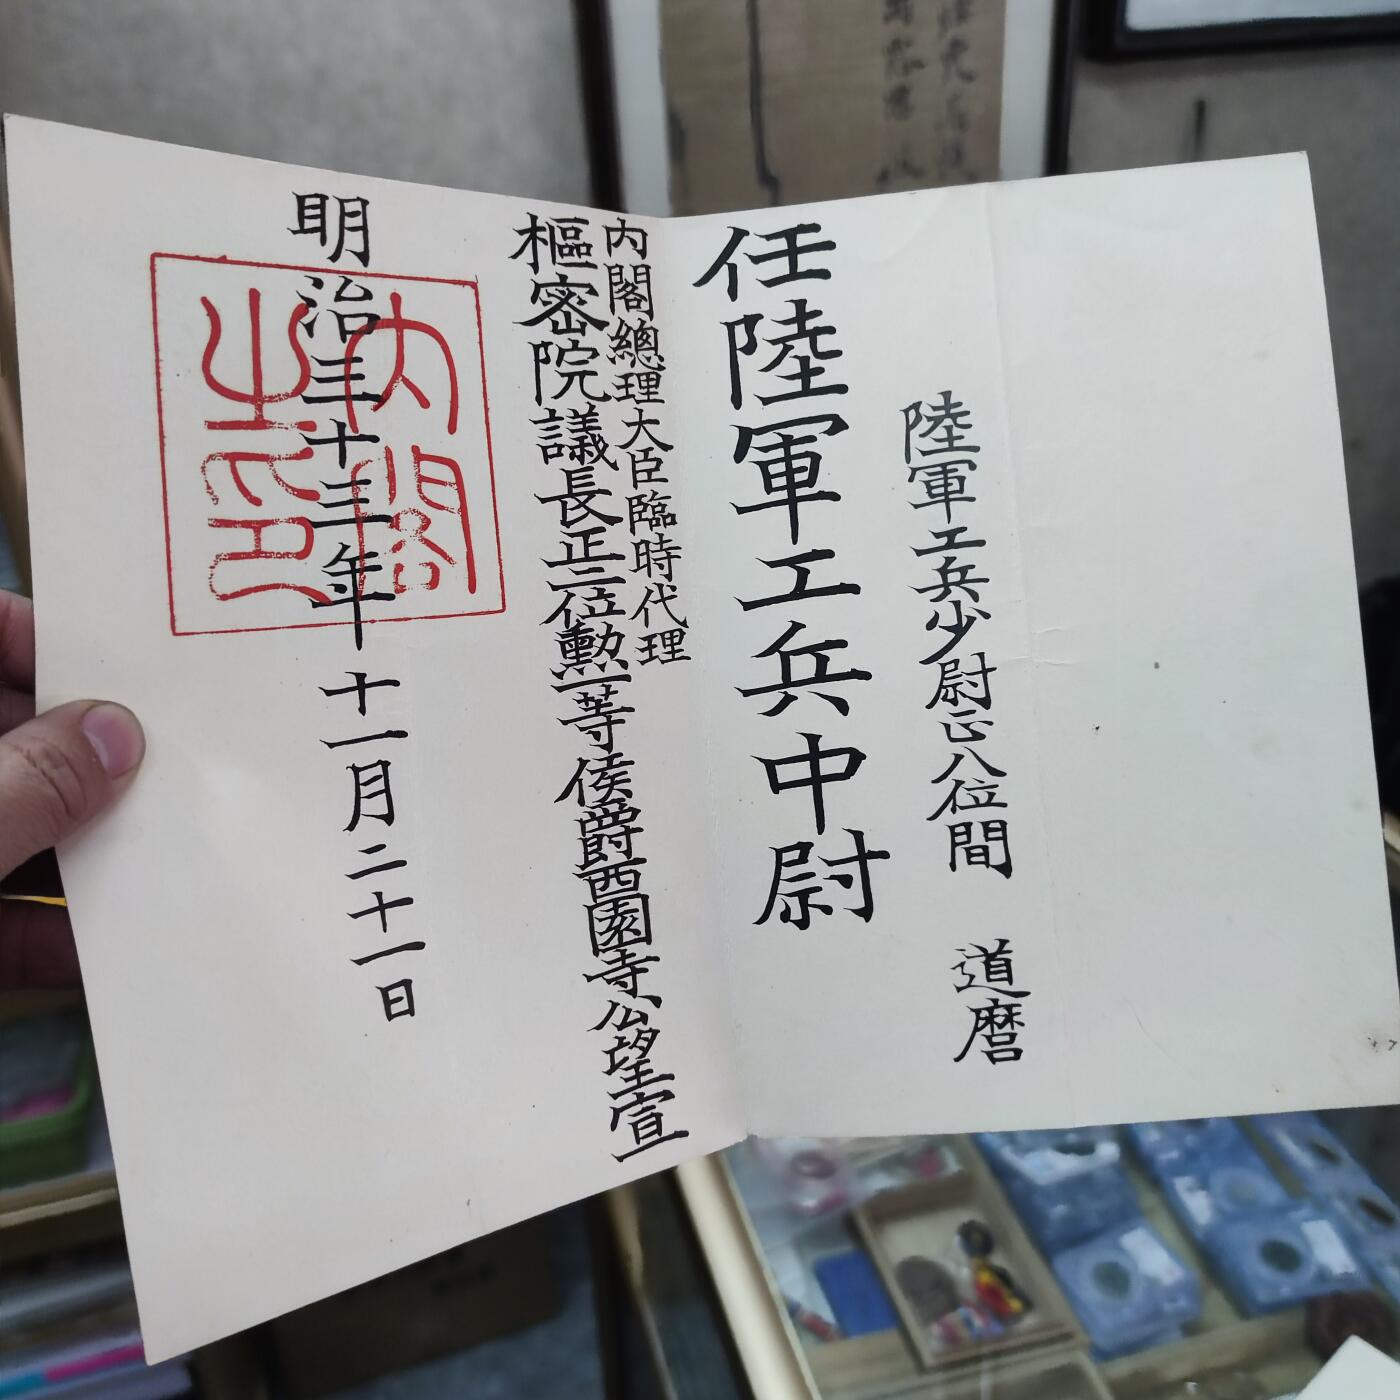 陸軍工兵少尉正八位間　道麿
任陸軍工兵中尉
内閣總理大臣臨時代理
樞密院議長正二位勲一等侯爵西園寺公望宣
明治三十三年十一月二十一日
内閣
之印